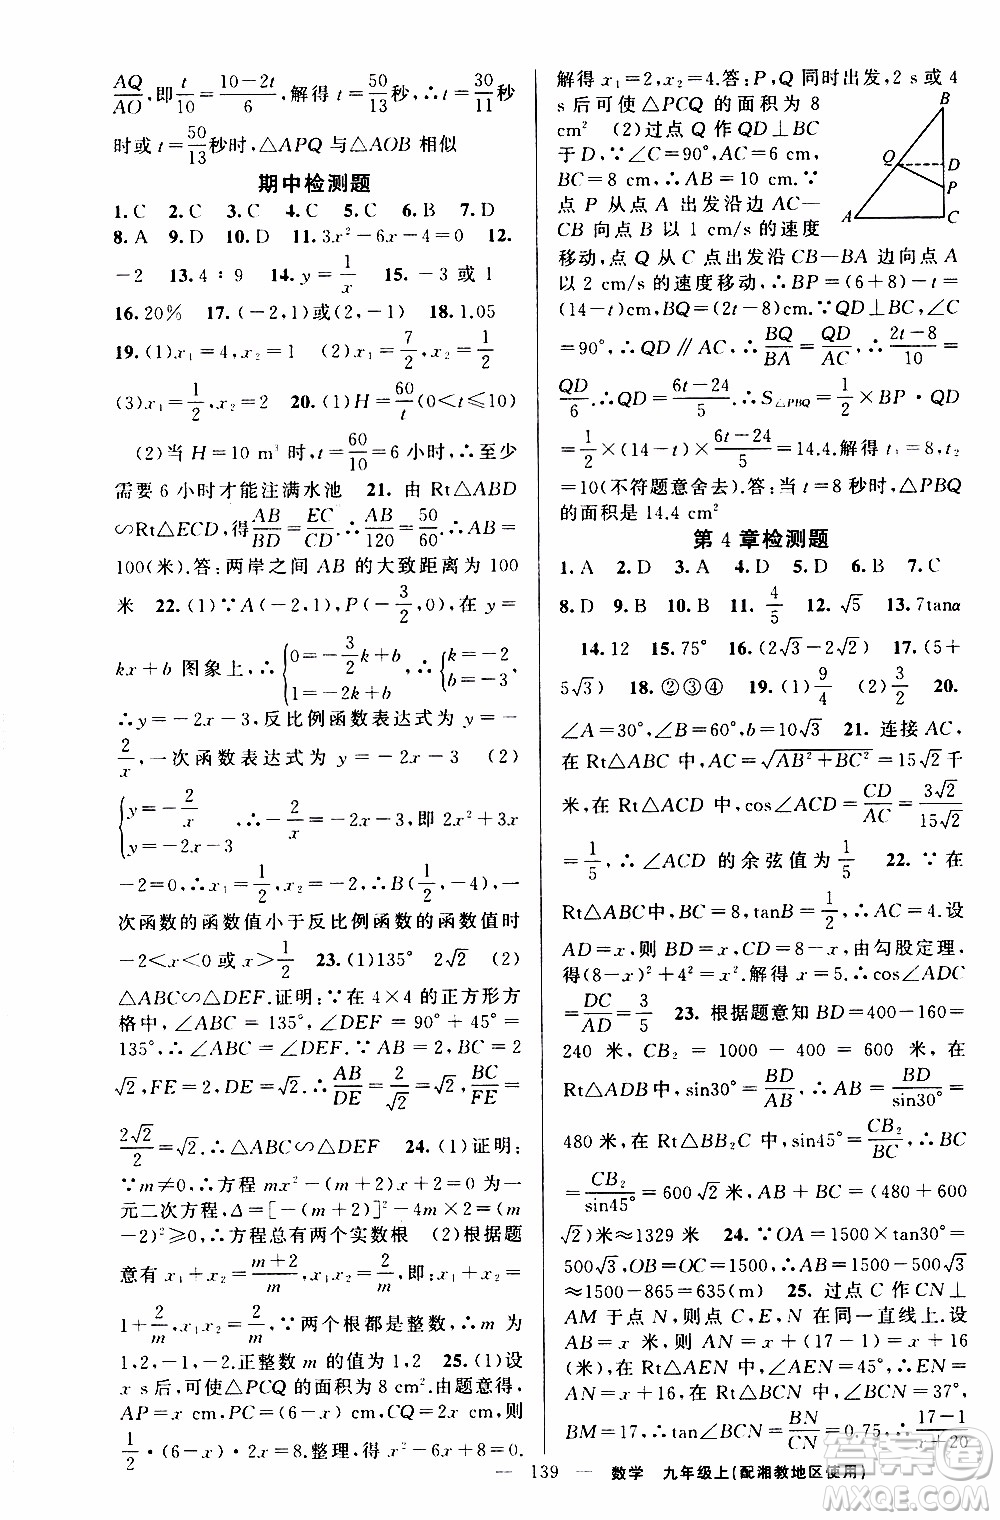 AQ/AO,即t/10=(10-2t)/6,解得t=50/13秒,∴t=30/11秒
时或t=50/13秒时,△APQ与△AOB相似
期中检测题
1.C 2.C 3.C 4.C 5.C 6.B 7.D
8.A 9.D 10.D 11.3x²-6x-4=0 12.
-2 13.4:9 14.y=1/x 15.-3或1
16.20% 17.(-2,1)或(2,-1) 18.1.05
19.(1)x₁=4,x₂=1 (2)x₁=7/2,x₂=1/2
(3)x₁=1/2,x₂=2 20.(1)H=60/t(0<t≤10)
(2)当H=10 m³时,t=60/10=6小时,∴至少
需要6小时才能注满水池 21.由Rt△ABD
∽Rt△ECD,得AB/BD=EC/CD.∴AB/120=50/60.∴AB=
100(米).答:两岸之间AB的大致距离为100
米 22.(1)∵A(-2,1),P(-3/2,0),在y=
kx+b图象上,∴{0=-3/2k+b,1=-2k+b ,∴{k=-2,b=-3,
∴y=-2x-3,反比例函数表达式为y=-
2/x,一次函数表达式为y=-2x-3 (2)
{y=-2/x,y=-2x-3 .∴-2/x=-2x-3,即2x²+3x
-2=0,∴x₁=1/2,x₂=-2,∴B(1/2,-4),一
次函数的函数值小于反比例函数的函数值时
-2<x<0或x>1/2 23.(1)135° 2√2 (2)
△ABC∽△DEF.证明:∵在4×4的正方形方
格中,∠ABC=135°,∠DEF=90°+45°=
135°,∴∠ABC=∠DEF.∵AB=2,BC=2
√2,FE=2,DE=√2.∴AB/DE=2/√2=√2,BC/FE=
2√2/2=√2.∴△ABC∽△DEF 24.(1)证明:
∵m≠0,∴方程mx²-(m+2)x+2=0是一
元二次方程,Δ=[-(m+2)]²-4m×2=(m
-2)²≥0,∴方程总有两个实数根 (2)根据题
意有x₁+x₂=(m+2)/m=1+2/m,x₁x₂=2/m.∵
1+2/m,x₁x₂=2/m,∵两个根都是整数,∴m为
1,2,-1,-2.正整数m的值为1,2 25.(1)设
x s后,可使△PCQ的面积为8 cm².由题意得,
AP=x cm,PC=(6-x)cm,CQ=2x cm,则
1/2·(6-x)·2x=8.整理,得x²-6x+8=0.
解得x₁=2,x₂=4.答:P,Q同时出发,2 s或4
s后可使△PCQ的面积为8
cm² (2)过点Q作QD⊥BC
于D,∵∠C=90°,AC=6 cm,
BC=8 cm,∴AB=10 cm.∵
点P从点A出发沿边AC-
CB向点B以1 cm/s的速度
移动,点Q从C点出发沿CB-BA边向点A
以2 cm/s的速度移动,∴BP=(6+8)-t=
(14-t)cm,BQ=(2t-8)cm.∵QD⊥BC,∠C
=90°,∴QD∥AC,∴BQ/BA=QD/AC,∴(2t-8)/10=
QD/6.∴QD=(6t-24)/5.∴S△PBQ=1/2×BP·QD
=1/2×(14-t)×(6t-24)/5=14.4.解得t₁=8,t₂
=10(不符题意舍去).答:当t=8秒时,△PBQ
的面积是14.4 cm²
B
Q
D
P
A
C
第4章检测题
1.A 2.D 3.C 4.D 5.D 6.B 7.C
8.D 9.B 10.B 11.4/5 12.√5 13.7tanα
14.12 15.75° 16.(2√3-2√2) 17.(5+
5√3) 18.②③④ 19.(1)9/4 (2)3/2 20.
∠A=30°,∠B=60°,b=10√3 21.连接AC,
在Rt△ABC中,AC=√(AB²+BC²)=15√2千
米,在Rt△ACD中,cos∠ACD=CD/AC=3√2/15√2
=1/5,∴∠ACD的余弦值为1/5 22.∵在
Rt△ABC中,BC=8,tanB=1/2,∴AC=4.设
AD=x,则BD=x,CD=8-x,由勾股定理,
得(8-x)²+4²=x².解得x=5.∴cos∠ADC
=DC/AD=3/5 23.根据题意知BD=400-160=
240米,CB₂=1000-400=600米,在
Rt△ADB中,sin30°=BD/AB,∴AB=BD/sin30°=
480米,在Rt△BB₂C中,sin45°=CB₂/BC,∴BC
=CB₂/sin45°=600√2米,∴AB+BC=(480+600
√2)米≈1329米 24.∵OA=1500×tan30°=
500√3,OB=OC=1500,∴AB=1500-500√3
≈1500-865=635(m) 25.过点C作CN⊥
AM于点N,则点C,E,N在一直线上,设
AB=x米,则AN=x+(17-1)=x+16
(米),在Rt△AEN中,∠AEN=45°,∴EN=
AN=x+16,在Rt△BCN中,∠BCN=37°,
BM=17,∴tan∠BCN=BN/CN=0.75,∴(17-1)/(x+20)
— 139 — 数学 九年级上(配湘教地区使用)
答案圈
MXQE.COM